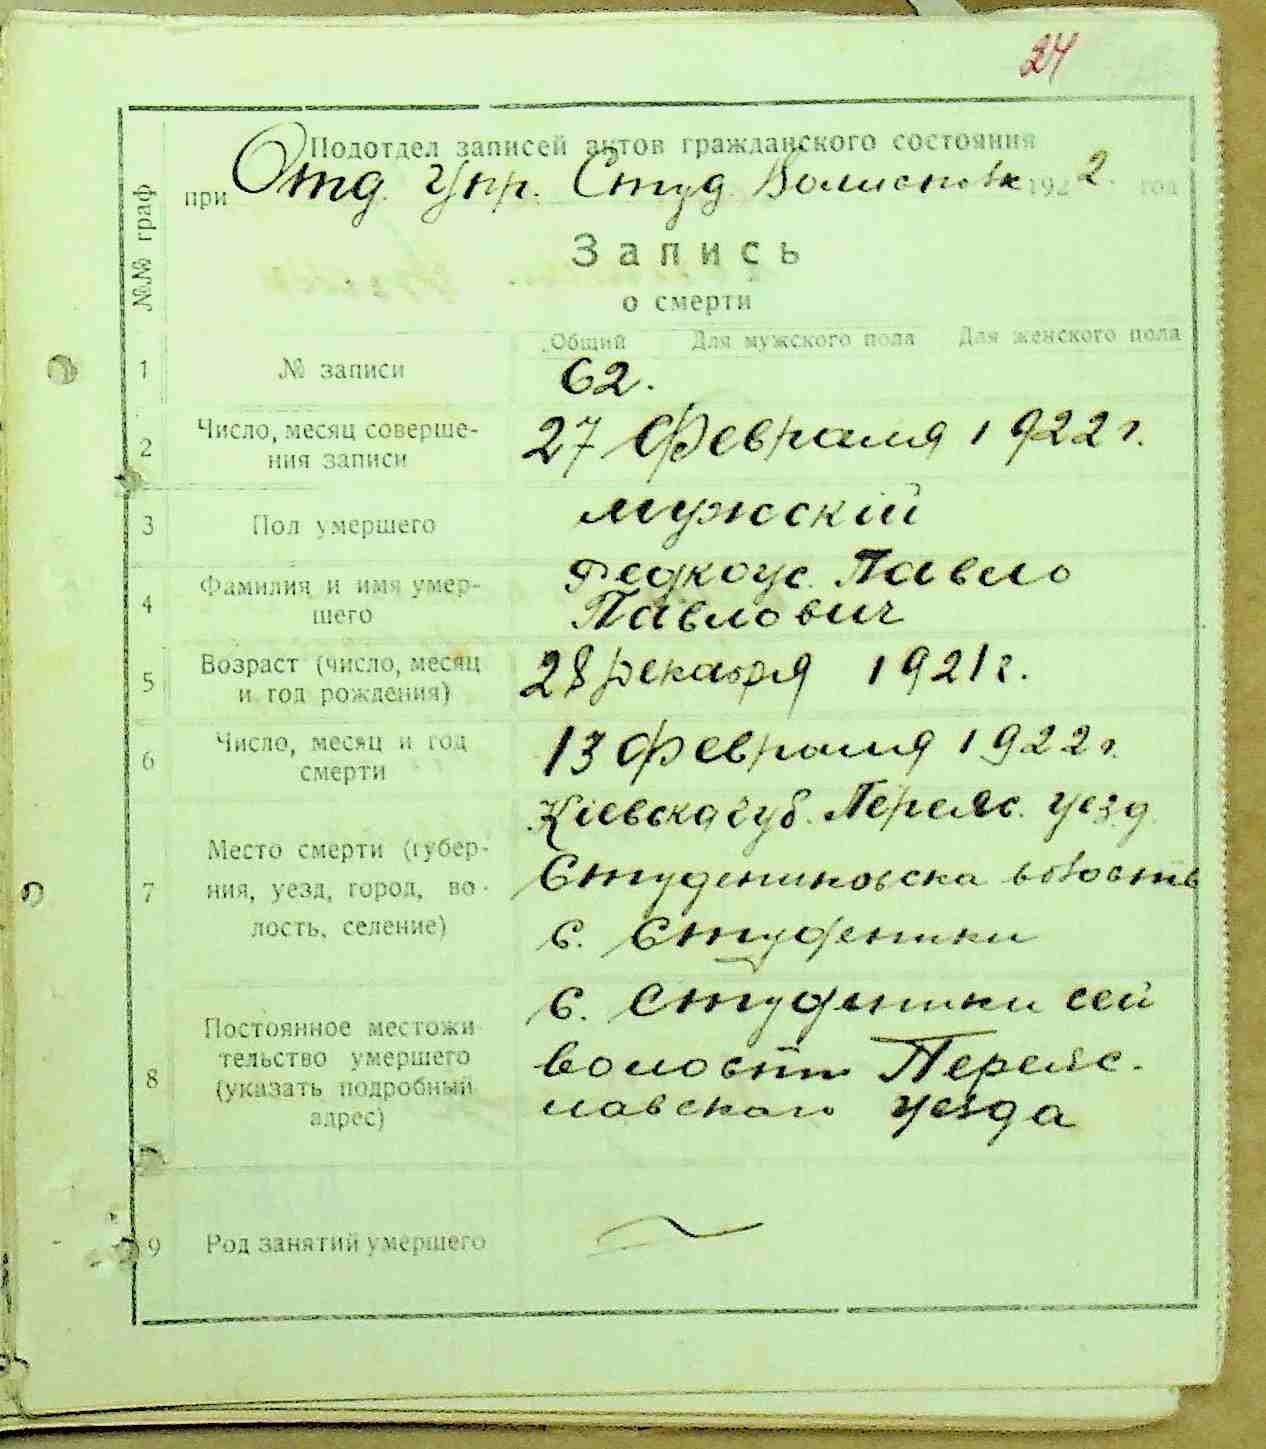 24
Подотдел записей актов гражданского состояния
при Отд. Упр. Студ. 1922. год
Запись
о смерти
№№ граф
Общий Для мужского пола Для женского пола
1 № записи 62.
2 Число, месяц соверше-
ния записи
27 Февраля 1922 г.
3 Пол умершего мужскій
4 Фамилия и имя умер-
шего
Федкоус Павло
Павлович
5 Возраст (число, месяц
и год рождения)
28 декабря 1921 г.
6 Число, месяц и год
смерти
13 Февраля 1922 г.
7 Место смерти (губер-
ния, уезд, город, во-
лость, селение)
Кіевска губ. Переяс. уезд
Студениковска волость
с. Студеники
8 Постоянное местожи
тельство умершего
(указать подробный
адрес)
с. Студеники сей
волости Переяс.
лавского уезда
9 Род занятий умершего